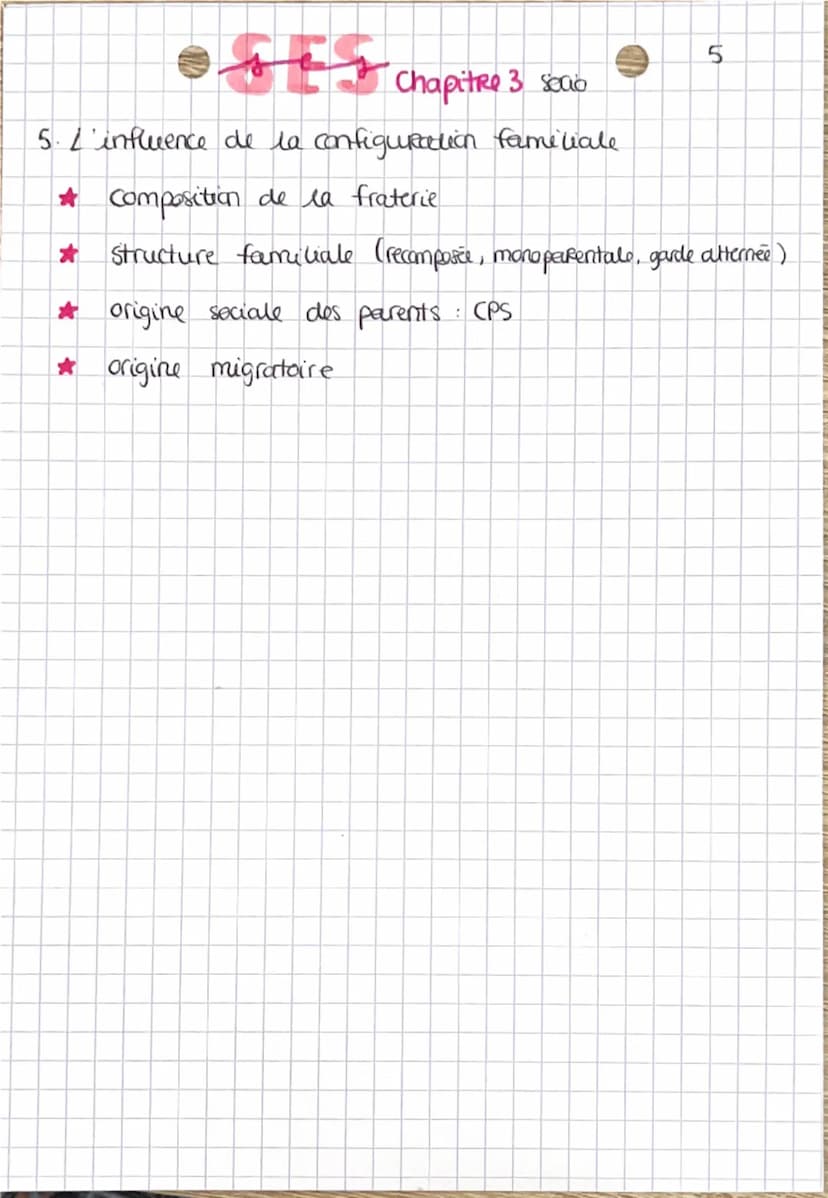 SES
ses Chapitre 3 socio
5
5. L'influence de la configuration familiale
★ composition de la fraterie
★ structure familiale (recomposée, monoparentale, garde alternée)
★ origine sociale des parents : CPS
★ origine migratoire